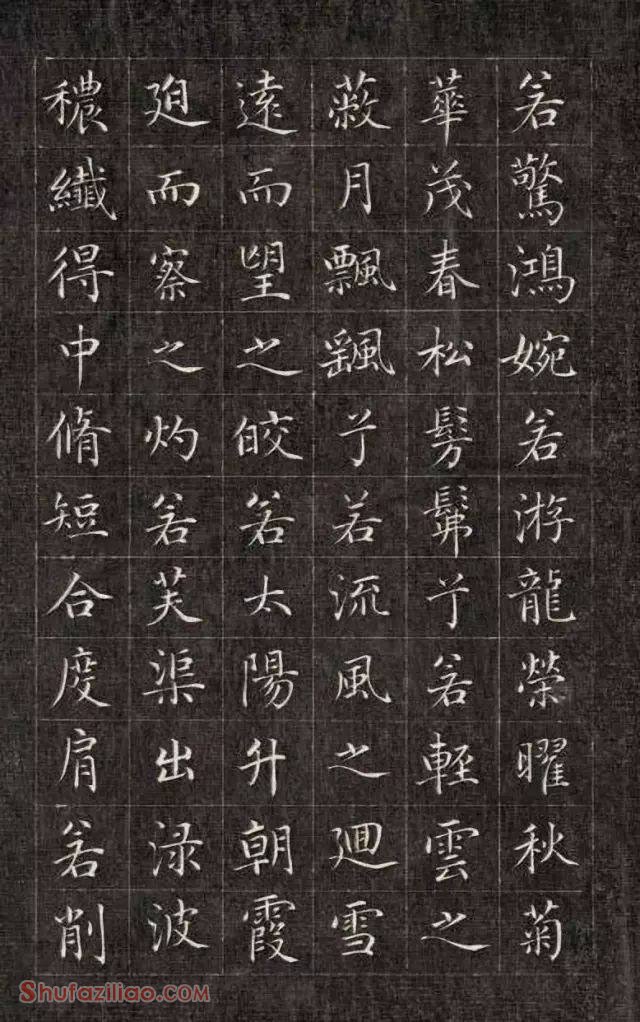 若驚鴻婉若游龍榮曜秋菊
華茂春松髣髴兮若輕雲之
蔽月飄颻兮若流風之迴雪
遠而望之皎若太陽升朝霞
迫而察之灼若芙渠出淥波
穠纖得中脩短合度肩若削
Shufaziliao.com